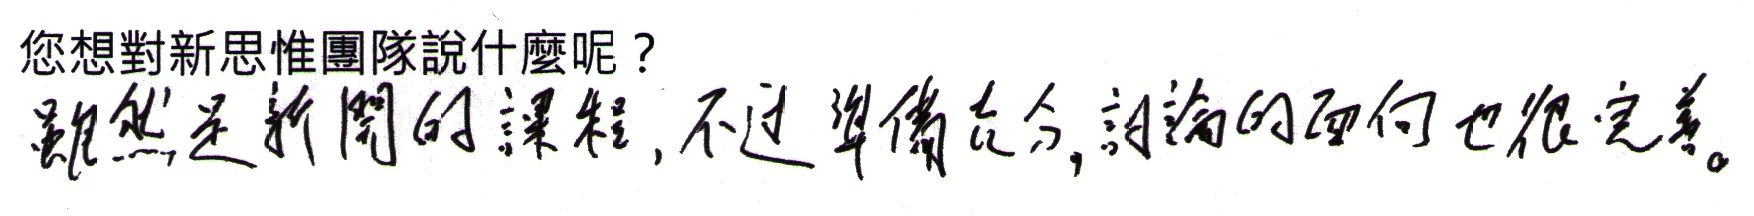 您想對新思惟團隊說什麼呢？
雖然是新開的課程，不过準備充分，討論的面向也很完善。